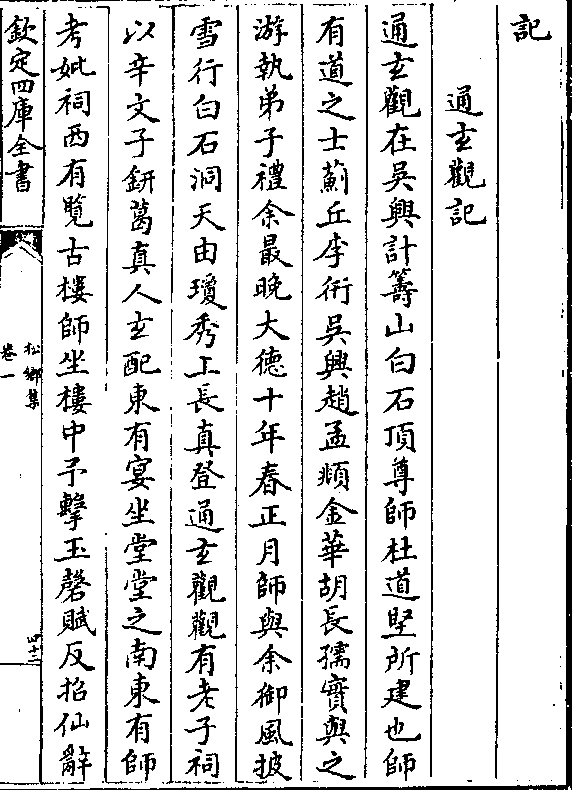 記
通玄觀記
通玄觀在吳興計籌山白石頂尊師杜道堅所建也師
有道之士薊丘李衎吳興趙孟頫金華胡長孺實與之
游執弟子禮余最晚大德十年春正月師與余御風披
雪行白石洞天由瓊秀上長真登通玄觀觀有老子祠
以辛文子鈃葛真人玄配東有宴坐堂堂之南東有師
考妣祠西有覽古樓師坐樓中予擊玉磬賦反招仙辭
欽定四庫全書
松鄉集
卷一
四十三